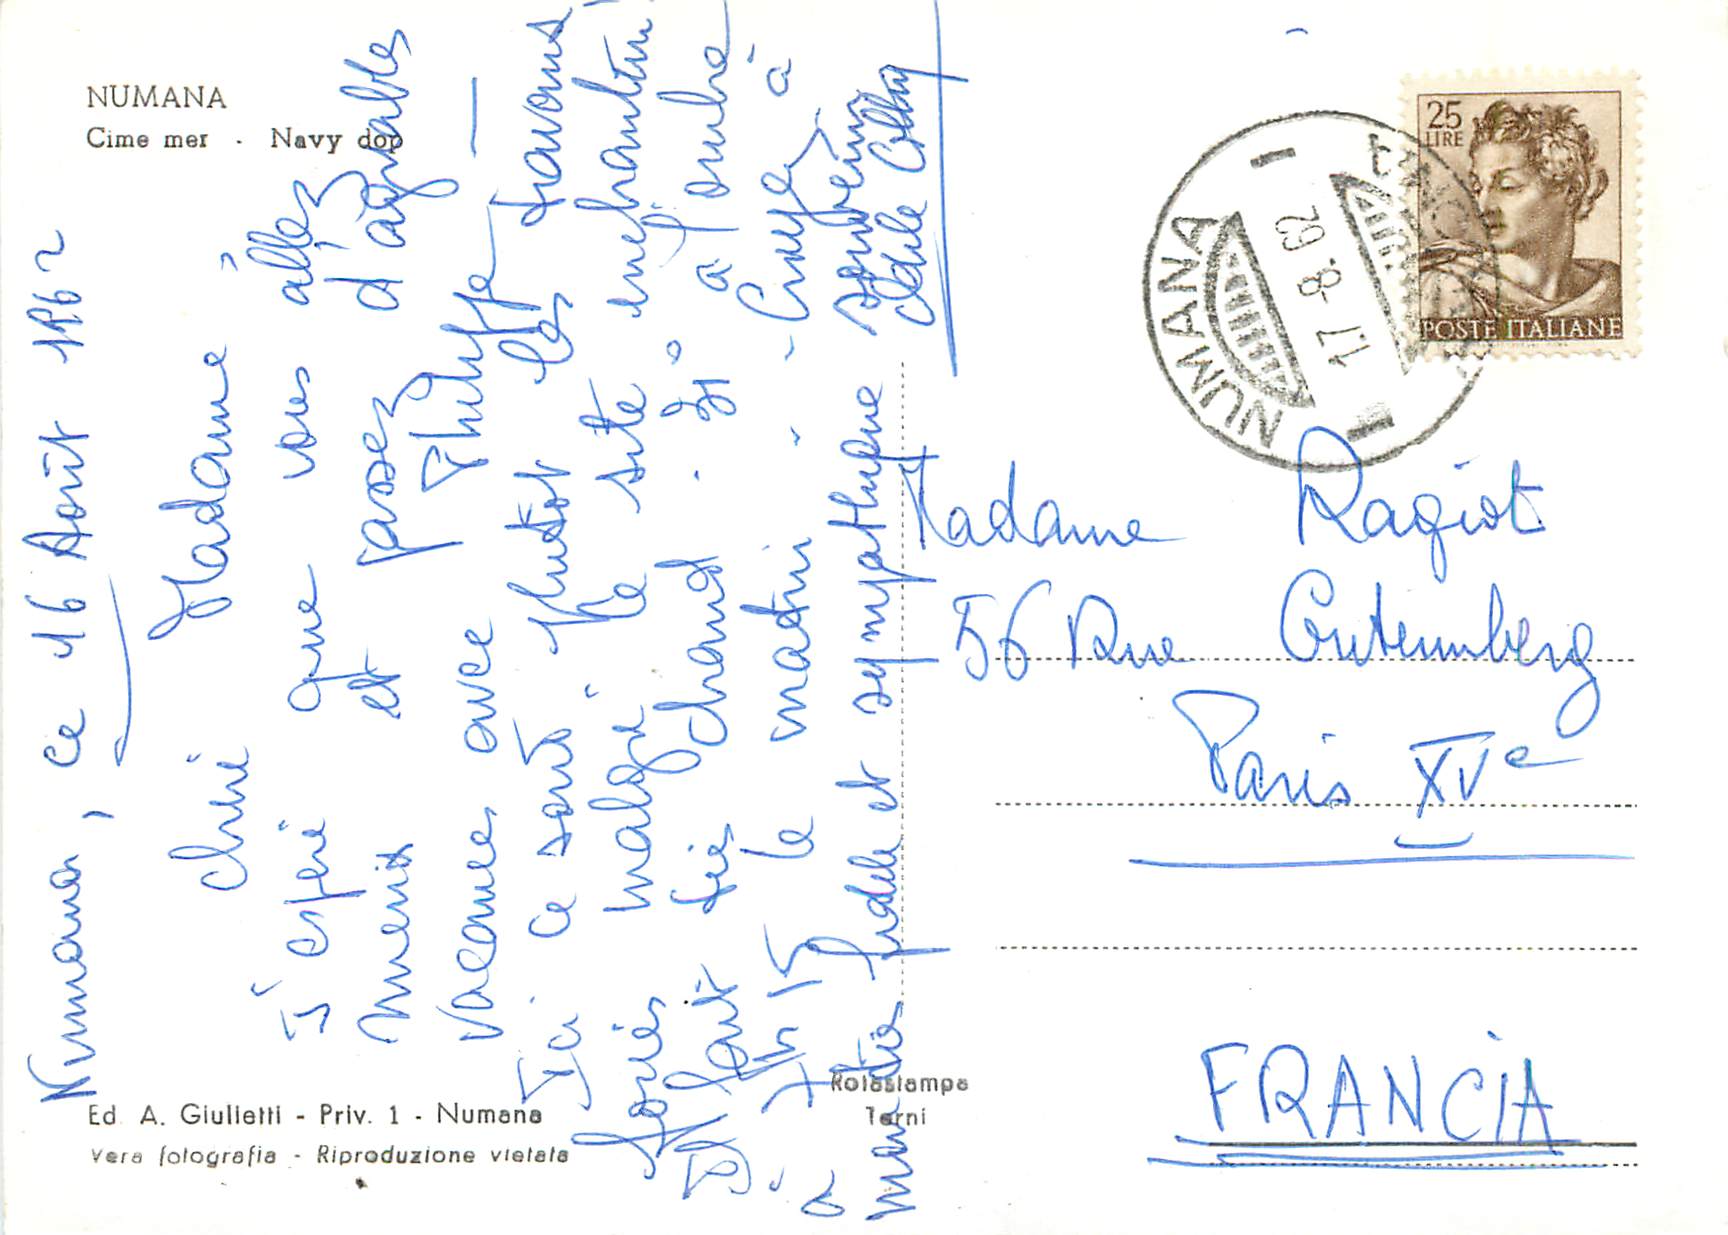 NUMANA
Cime mer - Navy dop
Numana, ce 16 Août 1962
Madame,
J'espère que vous allez
mieux et passez d'agréables
vacances avec Philippe —
Ici ce sont plutôt les travaux
forcés malgré le site enchanteur
Il fait très chaud. 31° à l'ombre
à 7h 15 le matin
fidèle et sympathique
56 Rue Gutemberg
Madame Ragiot
Paris XVe
FRANCIA
NUMANA
17-8.62
25
LIRE
POSTE ITALIANE
Ed. A. Giulietti - Priv. 1 - Numana
Vera fotografia - Riproduzione vietata
Rotastampa
Terni